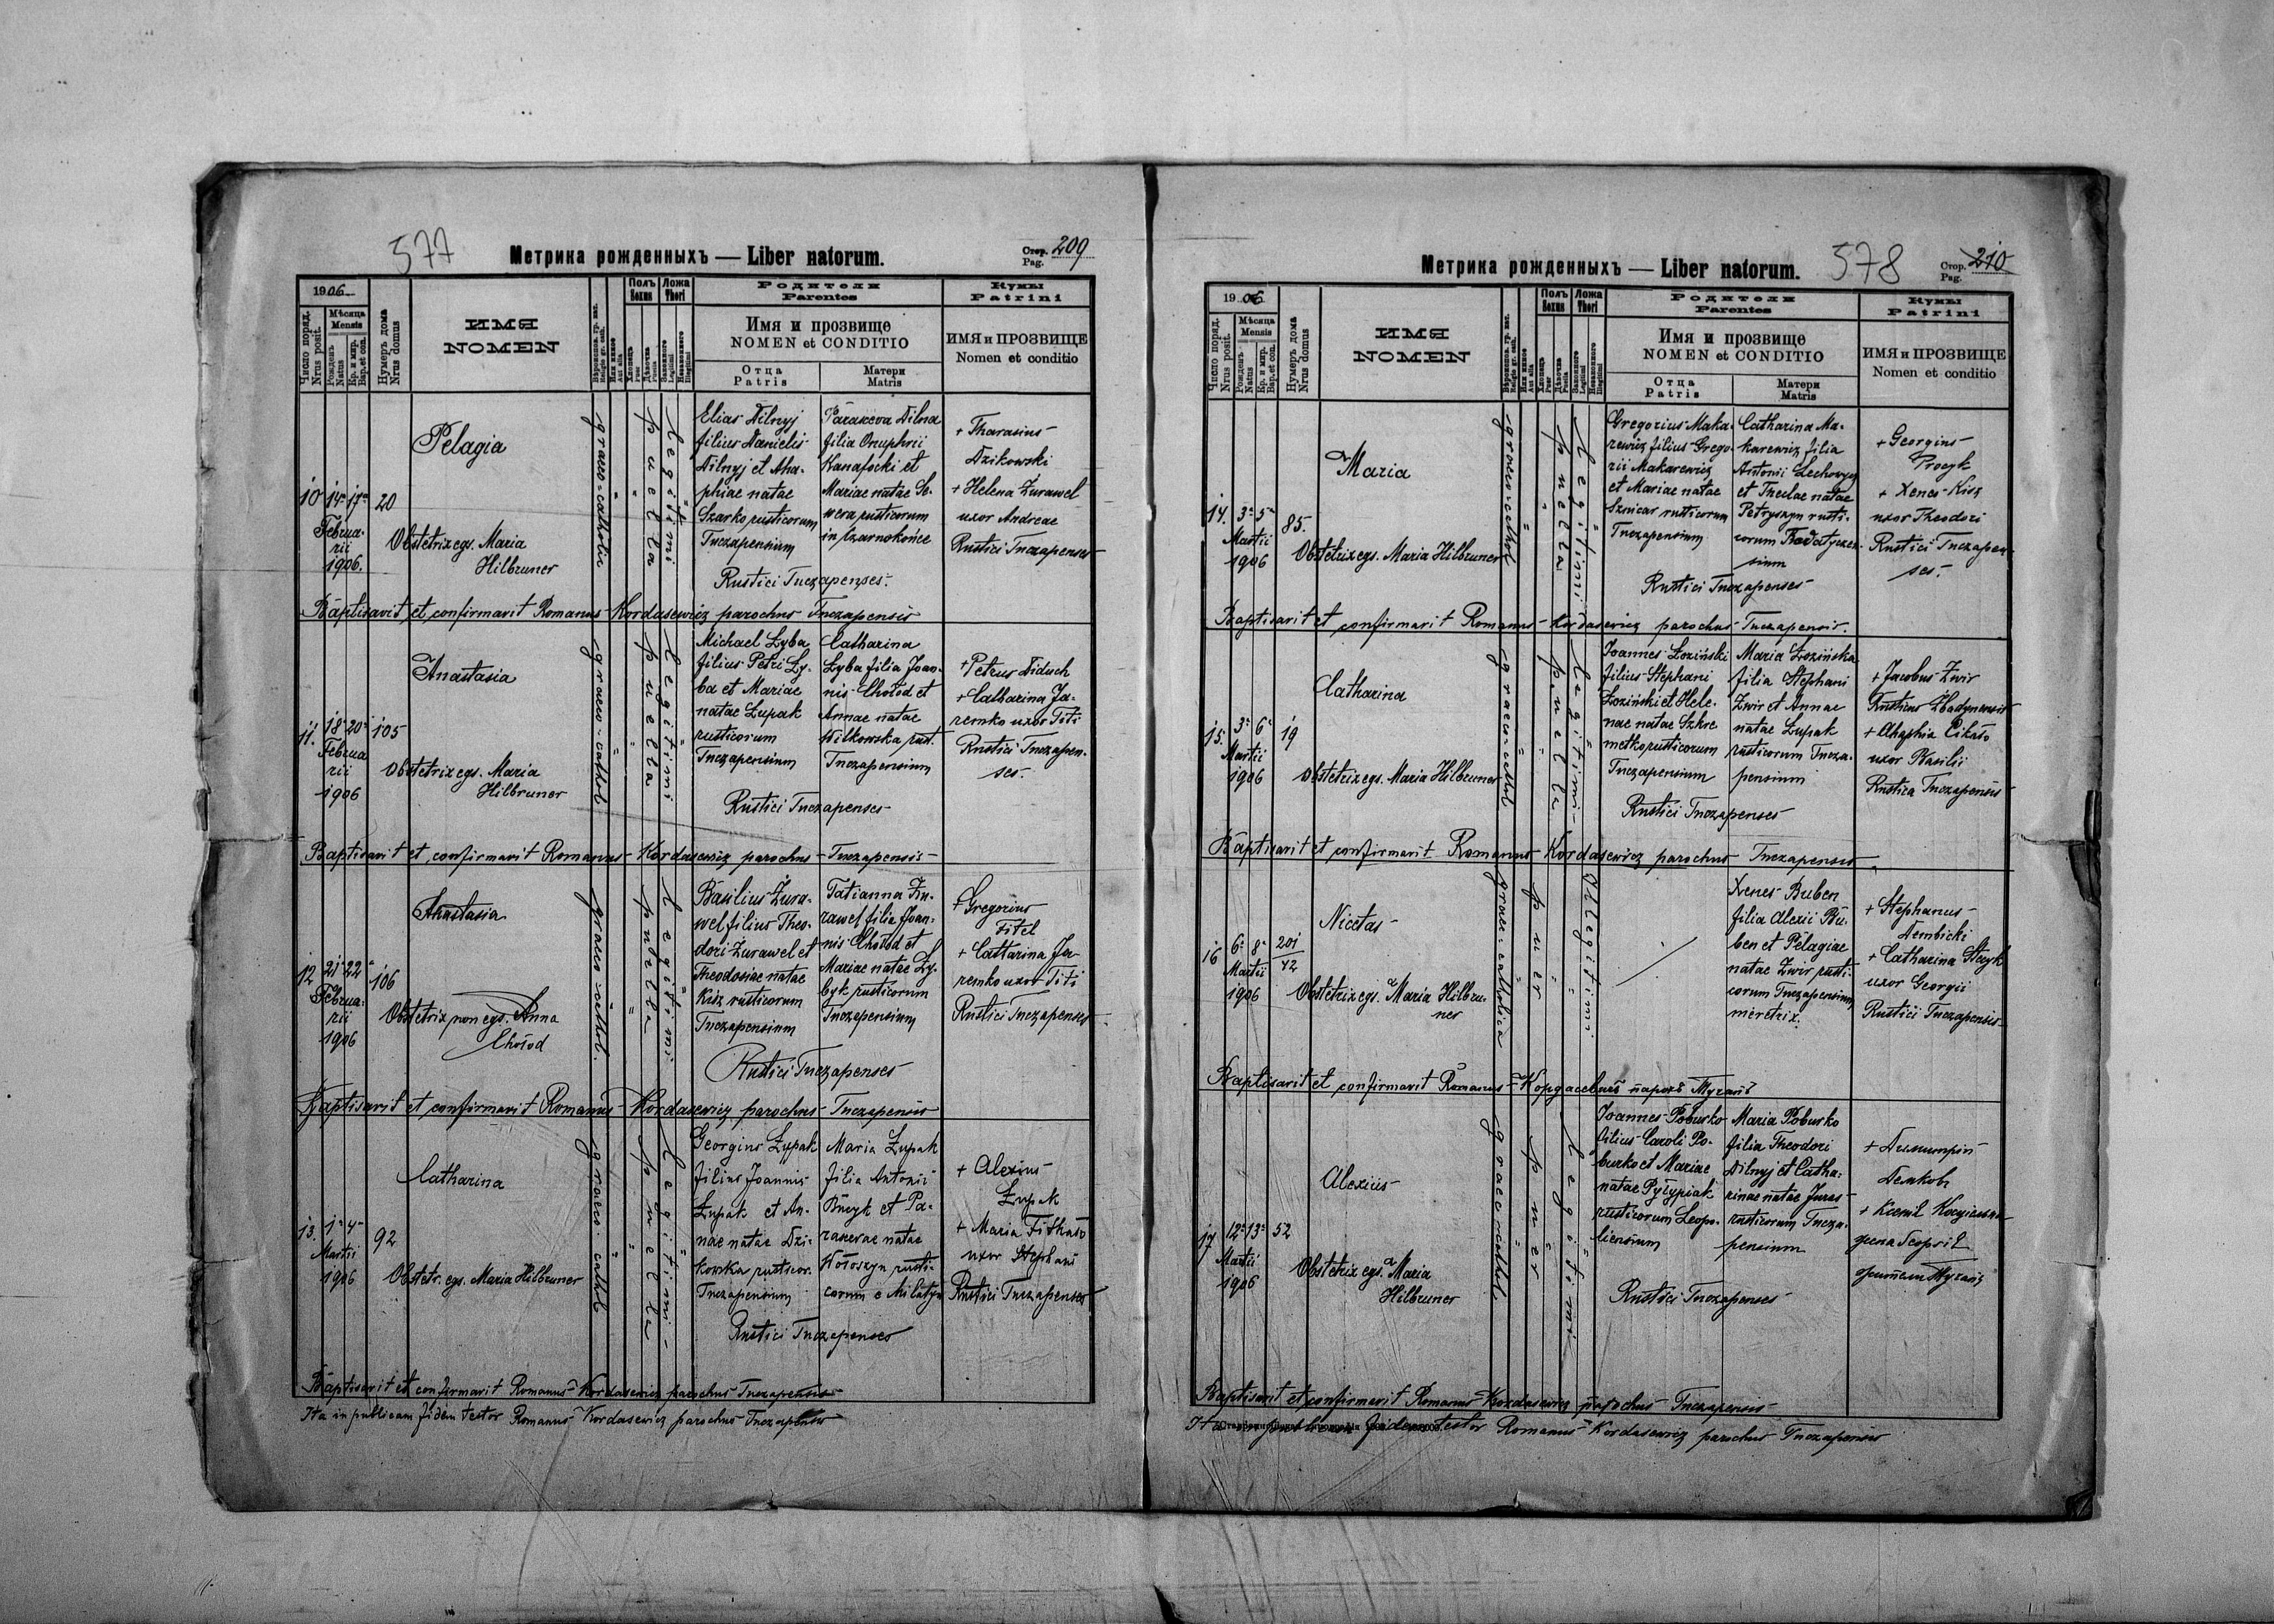 577
Метрика рожденныхъ — Liber natorum.
Стор. Pag. 209
1906
Число поряд. Nrus posit.
Мѣсяца Mensis
Рожденъ Natus
Кр. и мир. Bap. et con.
Нумеръ дома Nrus domus
ИМЯ
NOMEN
Полъ Sexus
Ложа Thori
Родители
Parentes
Имя и прозвище
NOMEN et CONDITIO
Отца
Patris
Матери
Matris
Кумы
Patrini
ИМЯ и ПРОЗВИЩЕ
Nomen et conditio
10 14 17 Februarii 1906. 20
Pelagia
Obstetrix egs. Maria
Hilbruner
graeco-catholica
puella
Legitimi
Elias Dilnyj
filius Danielis
Dilnyj et Aha-
phiae natae
Szarko rusticorum
Tuczapensium
Parasceva Dilna
filia Onuphrii
Kanafocki et
Mariae natae Se-
wera rusticorum
in Czarnokońce
Rustici Tuczapenses.
+ Tharasius
Dzikowski
+ Helena Żurawel
uxor Andreae
Rustici Tuczapenses
Baptisavit et confirmavit Romanus Kordasewicz parochus Tuczapensis
11. 18 20 Februarii 1906 105
Anastasia
Obstetrix egs. Maria
Hilbruner
graeco-cathol
puella
Legitimi
Michael Łyba
filius Petri Ły-
ba et Mariae
natae Łupak
rusticorum
Tuczapensium
Catharina
Łyba filia Joan-
nis Chołod et
Annae natae
Wilkowska rust.
Tuczapensium
Rustici Tuczapenses
+ Petrus Diduch
+ Catharina Ja-
remko uxor Titi
Rustici Tuczapen-
ses.
Baptisavit et confirmavit Romanus Kordasewicz parochus Tuczapensis
12 21 22 Februarii 1906 106
Anastasia
Obstetrix non egs. Anna
Chołod
graeco-cathol.
puella
Legitimi
Basilius Żura-
wel filius Theo-
dori Żurawel et
Theodosiae natae
Kisz rusticorum
Tuczapensium
Tatianna Żu-
rawel filia Joan-
nis Chołod et
Mariae natae Ły-
byk rusticorum
Tuczapensium
Rustici Tuczapenses
+ Gregorius
Fitel
+ Catharina Ja-
remko uxor Titi
Rustici Tuczapenses
Baptisavit et confirmavit Romanus Kordasewicz parochus Tuczapensis
13. 1 4 Martii 1906 92
Catharina
Obstetr. egs. Maria Hilbruner
graeco cathol
puella
Legitimi
Georgius Łupak
filius Joannis
Łupak et An-
nae natae Dzi-
kowska rusticor.
Tuczapensium
Maria Łupak
filia Antonii
Bucyk et Pa-
rascevae natae
Kołoszyn rusti-
corum e Milatyn
Rustici Tuczapenses
+ Alexius
Łupak
+ Maria
uxor Stephani
Rustici Tuczapenses
Baptisavit et confirmavit Romanus Kordasewicz parochus Tuczapensis
Ita in publicam fidem testor Romanus Kordasewicz parochus Tuczapensis
Метрика рожденныхъ — Liber natorum.
578
Стор. Pag. 210
1906
Число поряд. Nrus posit.
Мѣсяца Mensis
Рожденъ Natus
Кр. и мир. Bap. et con.
Нумеръ дома Nrus domus
ИМЯ
NOMEN
Полъ Sexus
Ложа Thori
Родители
Parentes
Имя и прозвище
NOMEN et CONDITIO
Отца
Patris
Матери
Matris
Кумы
Patrini
ИМЯ и ПРОЗВИЩЕ
Nomen et conditio
14. 3 5 Martii 1906 85.
Maria
Obstetrix egs. Maria Hilbruner
graeco-cathol
puella
Legitimi
Gregorius Maka-
rewicz filius Grego-
rii Makarewicz
et Mariae natae
Sznicar rusticorum
Tuczapensium
Catharina Ma-
karewicz filia
Antonii Lechowycz
et Theclae natae
Petryszyn rusti-
corum
sium
Rustici Tuczapenses
+ Georgius
Procyk
+ Xenes Kisz
uxor Theodori
Rustici Tuczapen-
ses.
Baptisavit et confirmavit Romanus Kordasewicz parochus Tuczapensis.
15. 3 6 Martii 1906 19
Catharina
Obstetrix egs. Maria Hilbruner
graeco-cathol
puella
Legitimi
Joannes Łoziński
filius Stephani
Łoziński et Hele-
nae natae Szkre-
metko rusticorum
Tuczapensium
Maria Łozińska
filia Stephani
Zwir et Annae
natae Łupak
rusticorum Tucza-
pensium
Rustici Tuczapenses
+ Jacobus Zwir
Rusticus
+ Ahaphia Cikało
uxor Basilii
Rustica Tuczapensis
Baptisavit et confirmavit Romanus Kordasewicz parochus Tuczapensis
16 6 8 Martii 1906 201/42
Nicetas
Obstetrix egs. Maria Hilbru-
ner
graeco-catholica
puer
Illegitimi
Xenes Buben
filia Alexii Bu-
ben et Pelagiae
natae Zwir rusti-
corum Tuczapensium
meretrix.
+ Stephanus
Dembicki
+ Catharina Stecyk
uxor Georgii
Rustici Tuczapenses
Baptisavit et confirmavit Romanus Кордасевичъ парохъ Тучапъ
17 12 13 Martii 1906 52
Alexius
Obstetrix egs. Maria
Hilbruner
graeco-cathol.
puer
Legitimi
Joannes Poburko
filius Caroli Po-
burko et Mariae
natae Pyłypiak
rusticorum Leopo-
liensium
Maria Poburko
filia Theodori
Dilnyj et Catha-
rinae natae Juras
rusticorum Tucza-
pensium
Rustici Tuczapenses
+ Димитрій
Демковъ
+ Ксенія
жена Георгія
жители Тучапъ
Baptisavit et confirmavit Romanus Kordasewicz parochus Tuczapensis
Ita in publicam fidem testor Romanus Kordasewicz parochus Tuczapensis